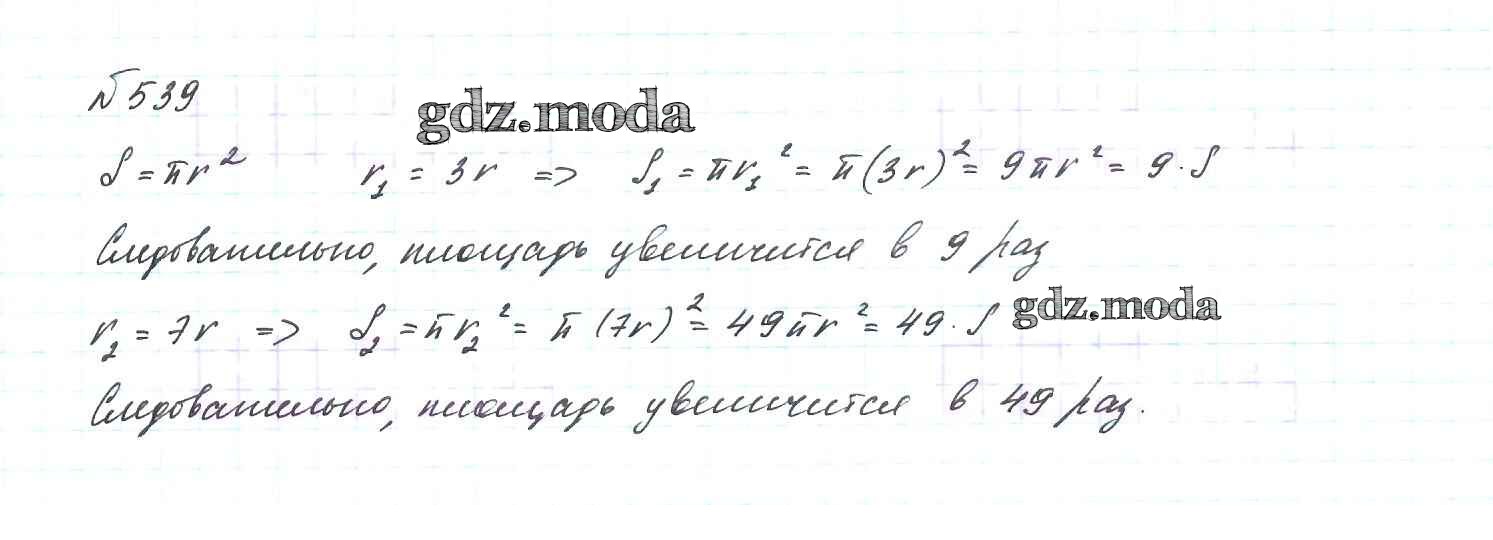 №539
gdz.moda
S = πr² r₁ = 3r => S₁ = πr₁² = π(3r)² = 9πr² = 9·S
Следовательно, площадь увеличится в 9 раз
r₂ = 7r => S₂ = πr₂² = π(7r)² = 49πr² = 49·S gdz.moda
Следовательно, площадь увеличится в 49 раз.